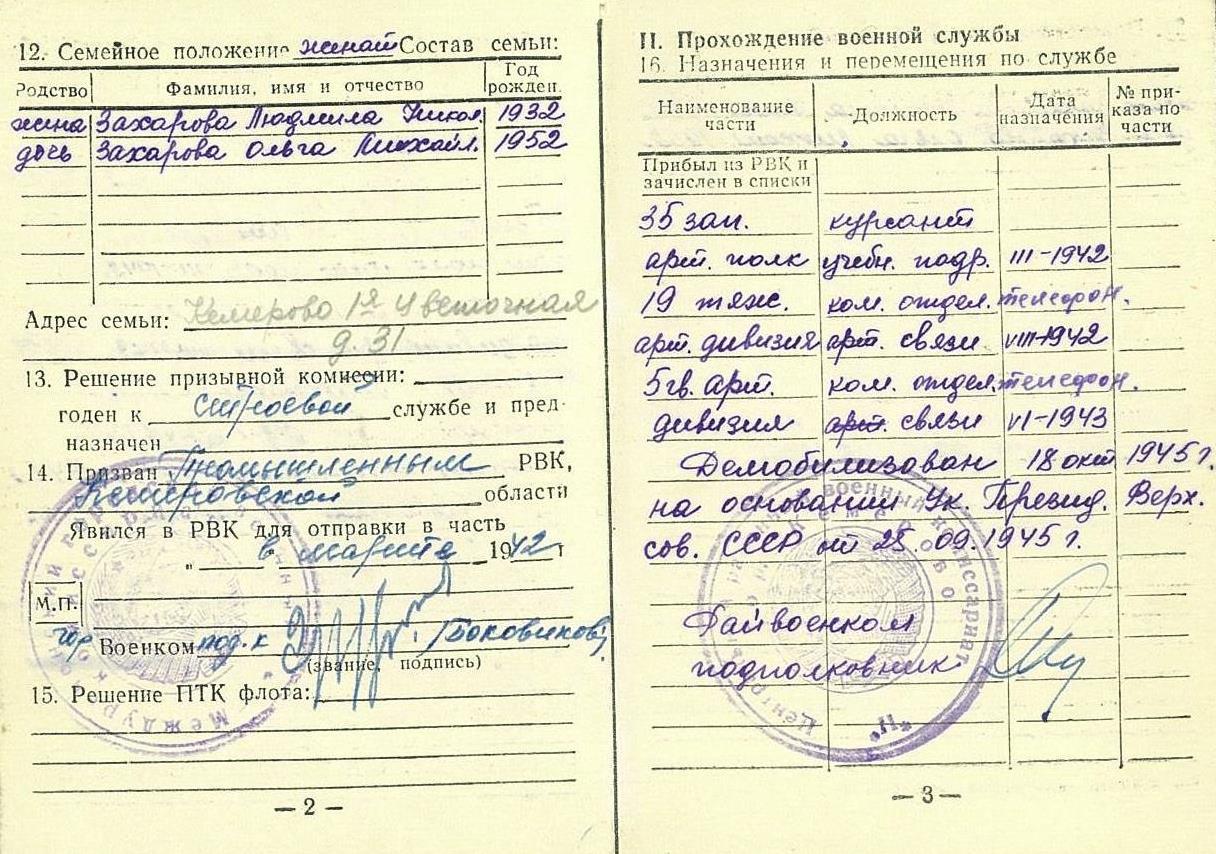 12. Семейное положение женат Состав семьи:
Родство Фамилия, имя и отчество Год рожден.
жена Захарова Людмила Никол. 1932
дочь Захарова Ольга Михайл. 1952
Адрес семьи: Кемерово 1я Цветочная
д. 31
13. Решение призывной комиссии:
годен к строевой службе и пред-
назначен
14. Призван Промышленным РВК,
Кемеровской области
Явился в РВК для отправки в часть
„ в марте 1942 г
М.П.
гор Военком под.к /Боковиков/
(звание, подпись)
15. Решение ПТК флота:
— 2 —
II. Прохождение военной службы
16. Назначения и перемещения по службе
Наименование части Должность Дата назначения № при-каза по части
Прибыл из РВК и
зачислен в списки
35 зап. курсант
арт. полк учебн. подр. III-1942
19 тяж. ком. отдел. телефон.
арт. дивизия арт. связи VIII-1942
5 гв. арт. ком. отдел. телефон.
дивизия арт. связи VI-1943
Демобилизован 18 окт 1945 г.
на основании Ук. Презид. Верх.
сов. СССР от 25.09.1945 г.
Райвоенком
подполковник
— 3 —